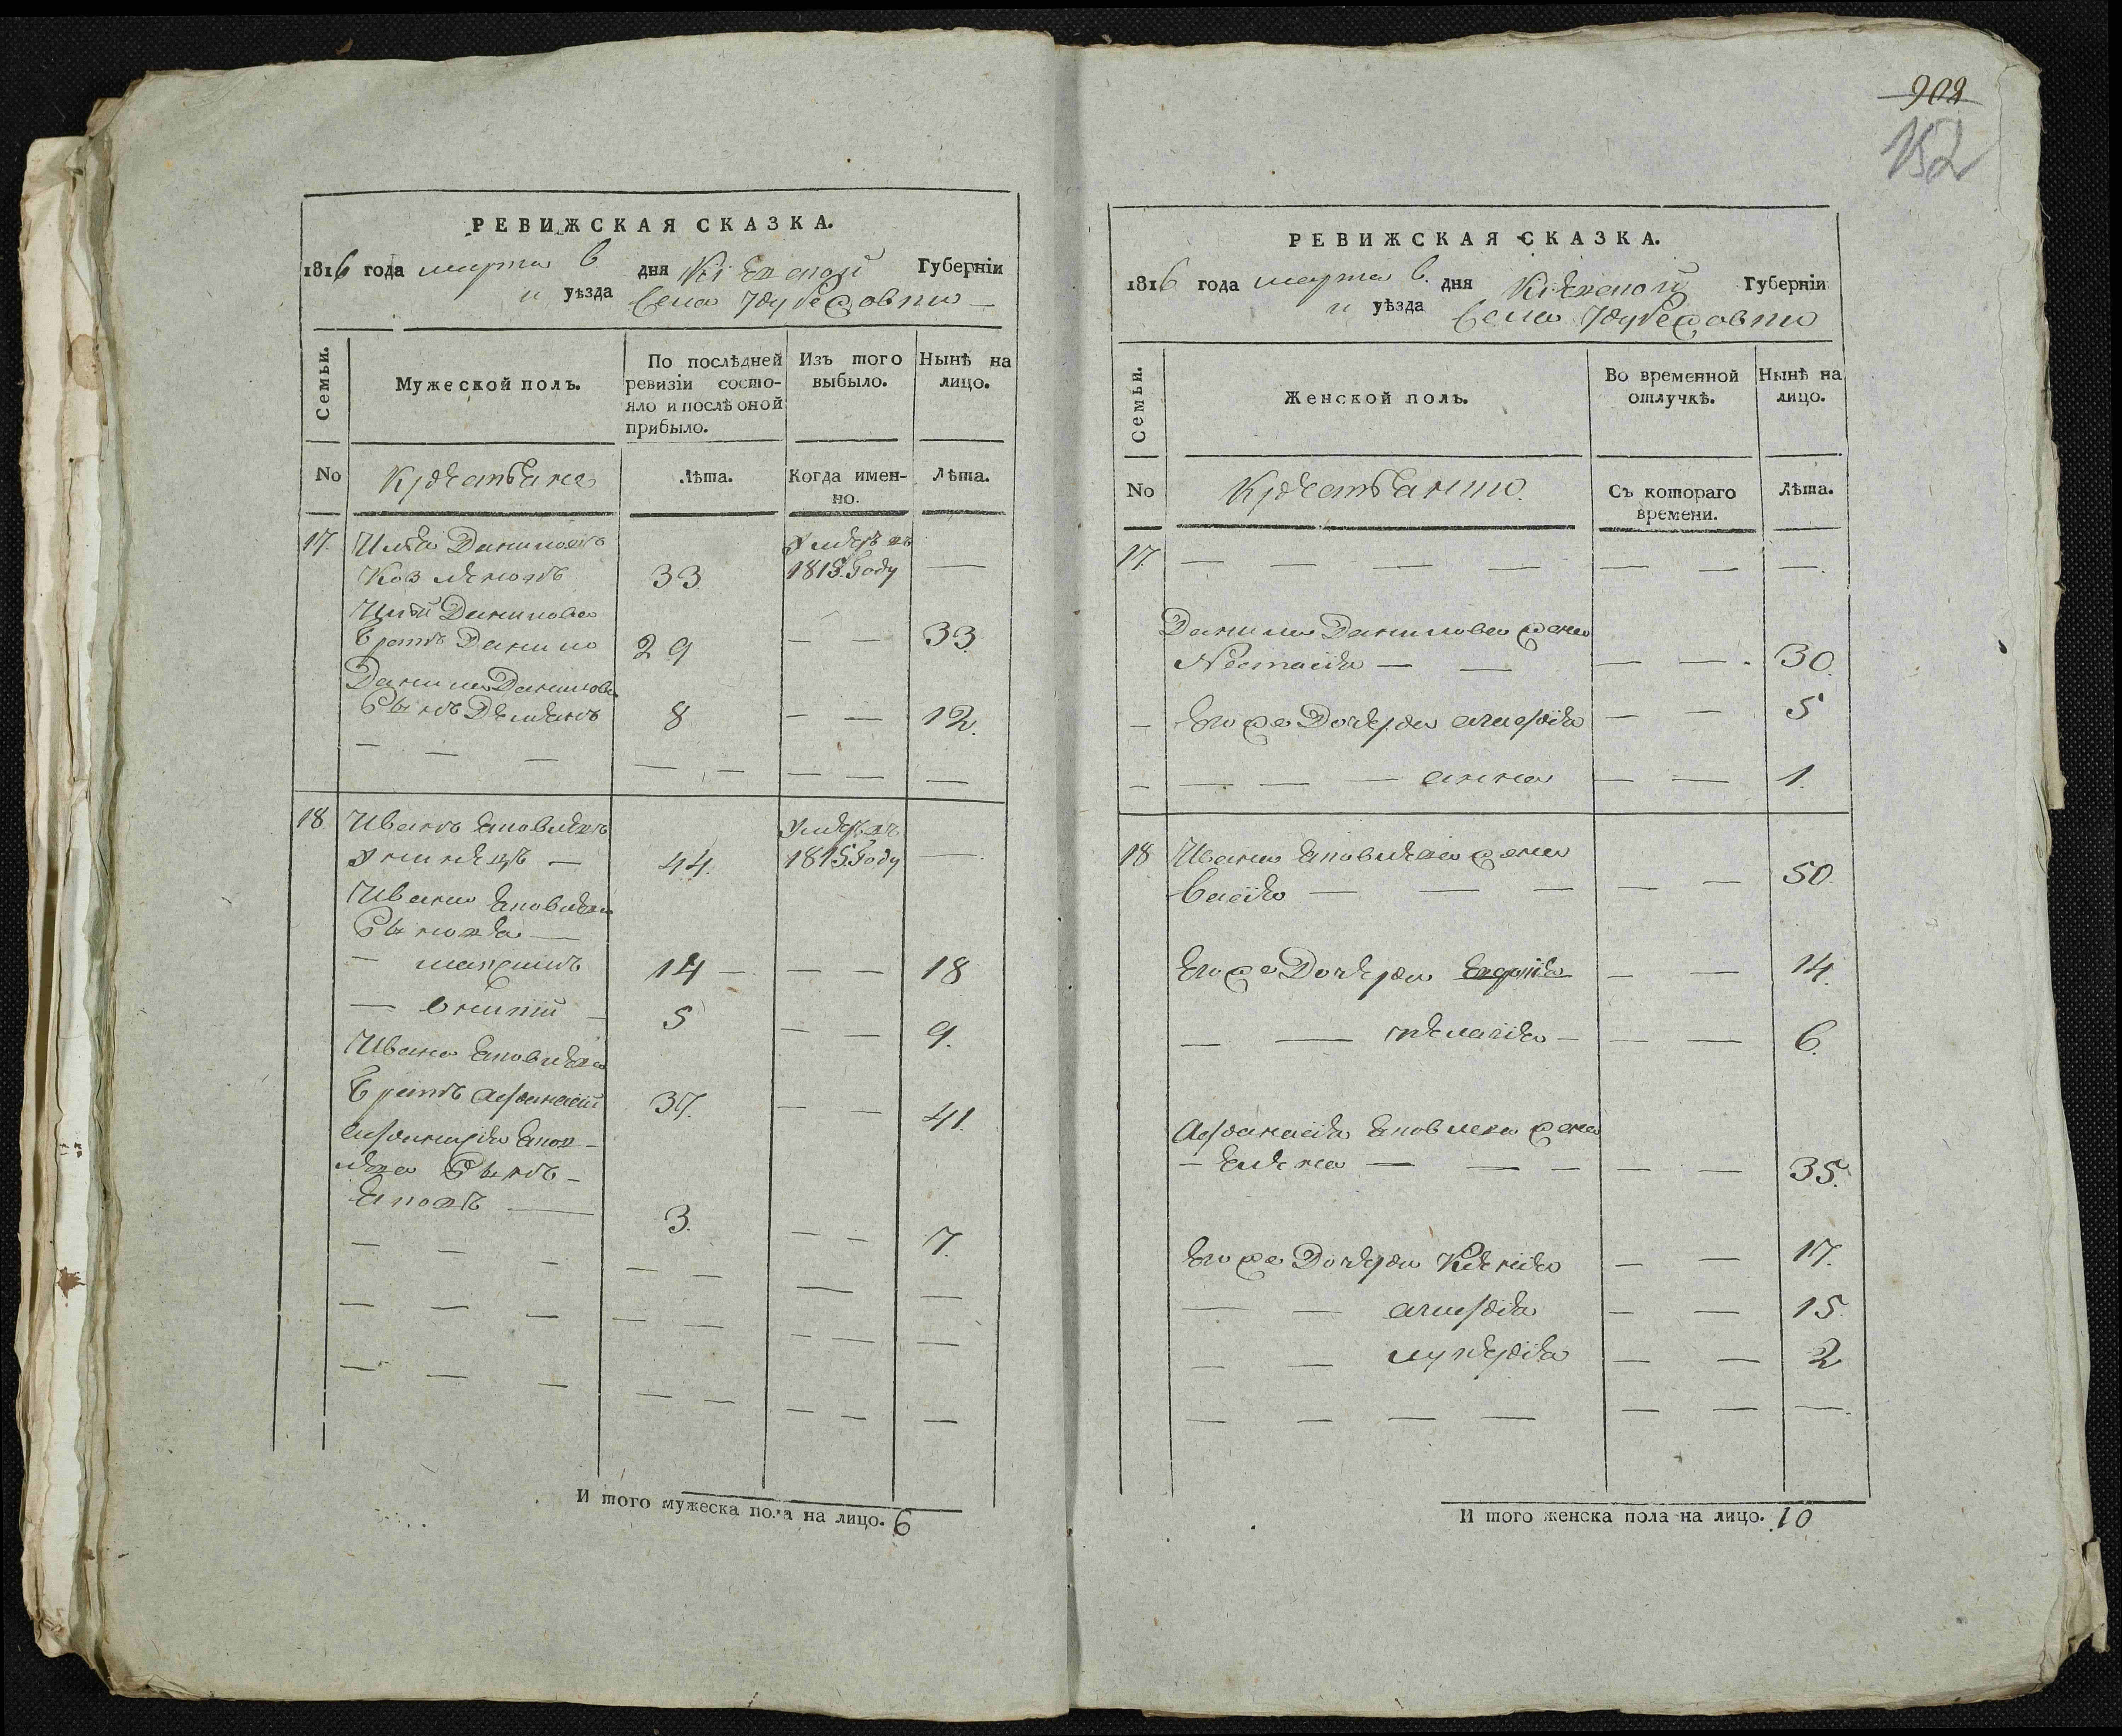 908
152
РЕВИЖСКАЯ СКАЗКА.
1816 года марта 6 дня Кіевской Губерніи
и уѣзда Села
Семьи.
Мужеской полъ.
По послѣдней ревизіи состо-
яло и послѣ оной
прибыло.
Изъ того
выбыло.
Нынѣ на
лицо.
No
Крестьяне
Лѣта.
Когда имен-
но.
Лѣта.
17. Илья Даниловъ умеръ въ
33 1815 Году —
Ильи Данилова
братъ Данило 29 — — 33.
Данила Данилова
Сынъ Демьянъ 8 — — 12.
18 Иванъ Яковлевъ умеръ въ
44. 1815 Году —
Ивана Яковлева
Сыновья —
— максимъ 14 — — — 18
— 5 — — 9.
Ивана Яковлева
братъ афанасій 37. — — 41.
афанасья Яков-
лева Сынъ —
Яковъ — 3. — — 7.
И того мужеска пола на лицо. 6
РЕВИЖСКАЯ СКАЗКА.
1816 года марта 6. дня Кіевской Губерніи
и уѣзда Села
Семьи.
Женской полъ.
Во временной
отлучкѣ.
Нынѣ на
лицо.
No
Съ котораго
времени.
Лѣта.
17. — — — — — — —.
Данила Данилова жена
Настасія — — — — 30.
— Его же Дочери агафія — — 5
— — — — анна — — 1.
18 Ивана Яковлева жена
— — — — — 50.
Его же Дочери — — 14.
— — пелагія — — — 6.
Афанасія Яковлева жена
— Елена — — — — — 35.
Его же Дочери Ксенія — — 17.
— — агафія — — 15.
— — лукерія — — 2
— — — — — — —.
И того женска пола на лицо. 10